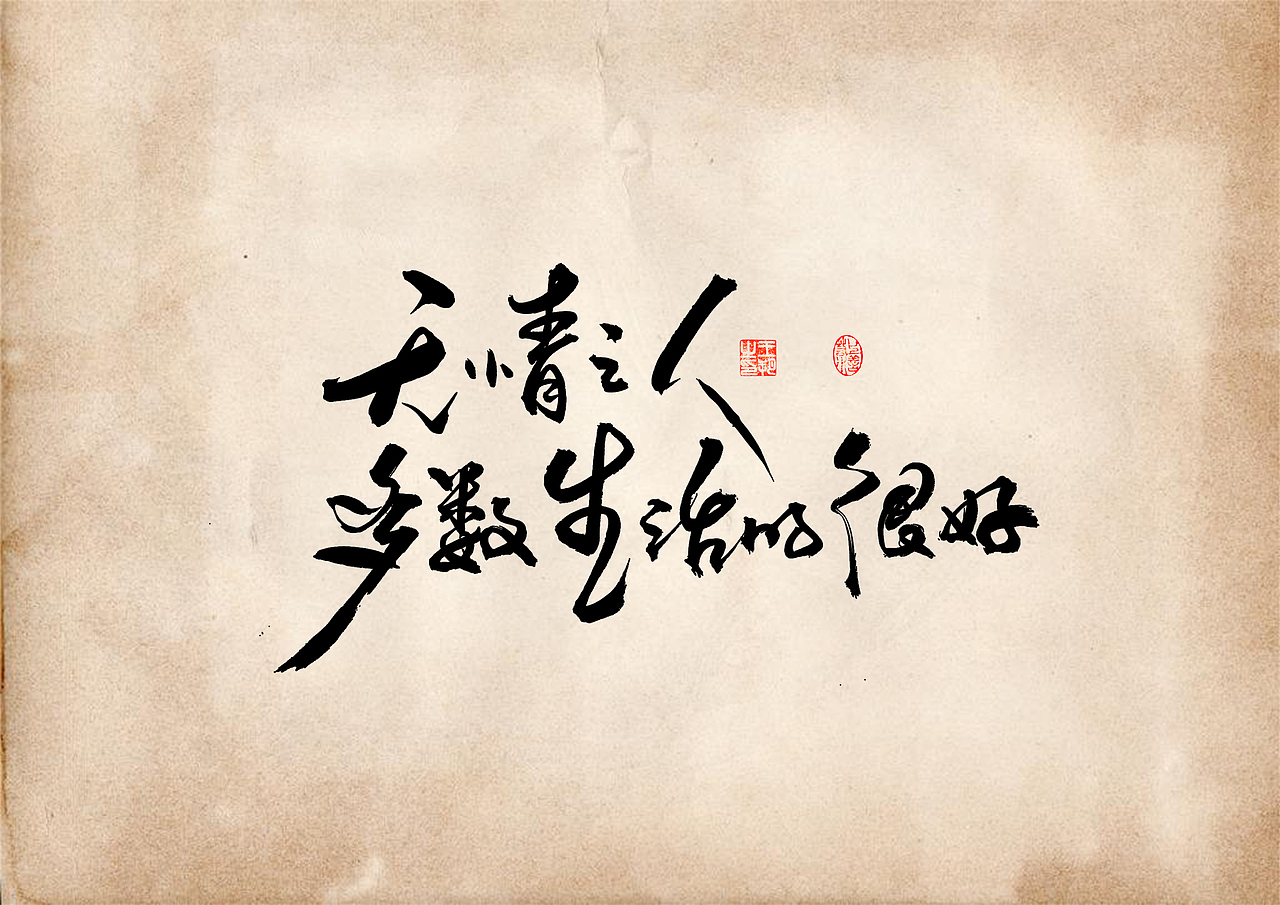 无情之人
多数生活的很好